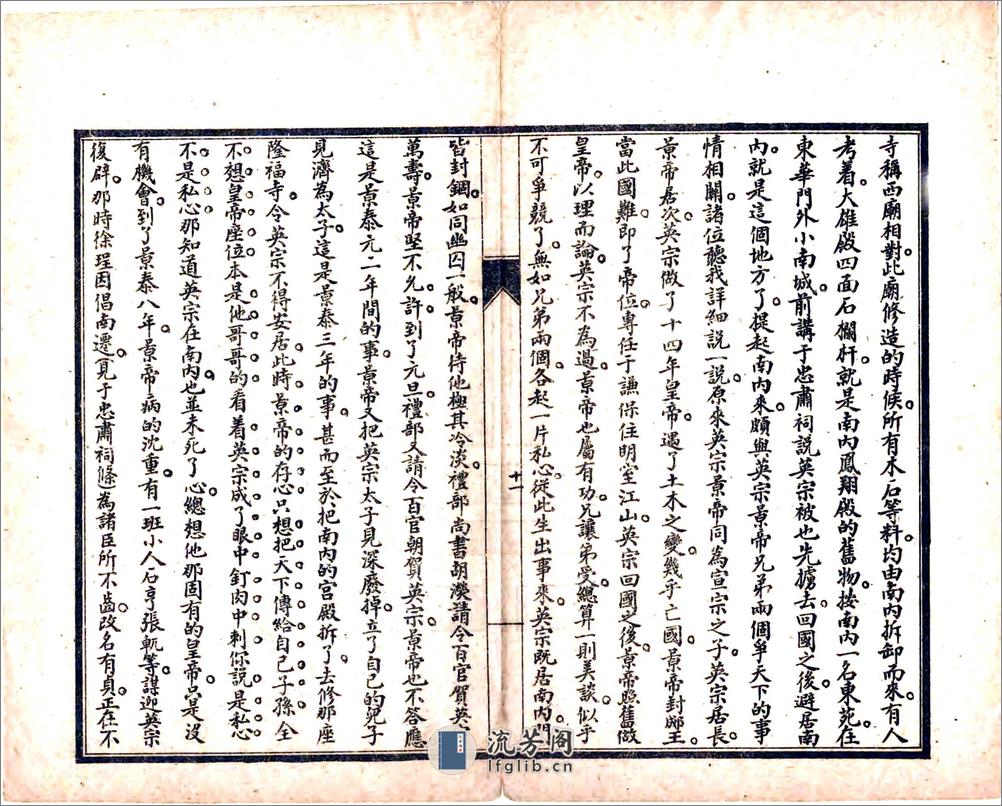 寺稱西廟相對。此廟修造的時候所有木石等料均由南內拆卸而來。有人
考着大雄殿四面石欄杆就是南內鳳翔殿的舊物。按南內一名東苑。在
東華門外小南城。前講于忠肅祠說英宗被也先擄去。回國之後避居南
內。就是這個地方了。提起南內來。頗與英宗景帝兄弟兩個爭天下的事
情相關。諸位聽我詳細說一說。原來英宗景帝同為宣宗之子。英宗居長。
景帝居次。英宗做了十四年皇帝。遇了土木之變。幾乎亡國。景帝封郕王。
當此國難。即了帝位。專任于謙保住明室江山。英宗回國之後。景帝照舊做
皇帝。以理而論。英宗不為過。景帝也屬有功。兄讓弟受。總算一則美談。似乎
不可爭競了。無如兄弟兩個各起一片私心。從此生出事來。英宗既居南內。門
十一
皆封錮。如同幽囚一般。景帝待他極其冷淡。禮部尚書胡濙請令百官賀英宗
萬壽。景帝堅不允許。到了元旦。禮部又請令百官朝賀英宗。景帝也不答應。
這是景泰元二年間的事。景帝又把英宗太子見深廢掉。立了自己的兒子
見濟為太子。這是景泰三年的事。甚而至於把南內的宮殿拆了去修那座
隆福寺。令英宗不得安居。此時景帝的存心。只想把天下傳給自己子孫。全
不想皇帝座位本是他哥哥的。看着英宗成了眼中釘肉中刺。你說是私心
不是私心。那知道英宗在南內也並未死了心。總想他那固有的皇帝。只是沒
有機會。到了景泰八年。景帝病的沈重。有一班小人石亨張軏等。謀迎英宗
復辟。那時徐珵因倡南遷。見于忠肅祠條為諸臣所不齒。改名有貞。正在不
流芳閣
lfglib.cn